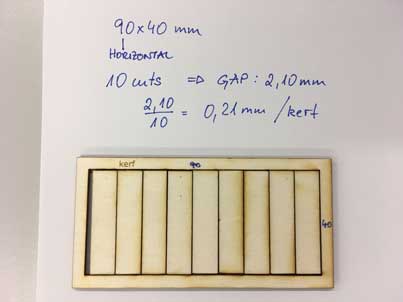 90x40 mm
HORIZONTAL
10 cuts ⇒ GAP: 2,10mm
2,10/10 = 0,21mm/kerf
kerf 90
40